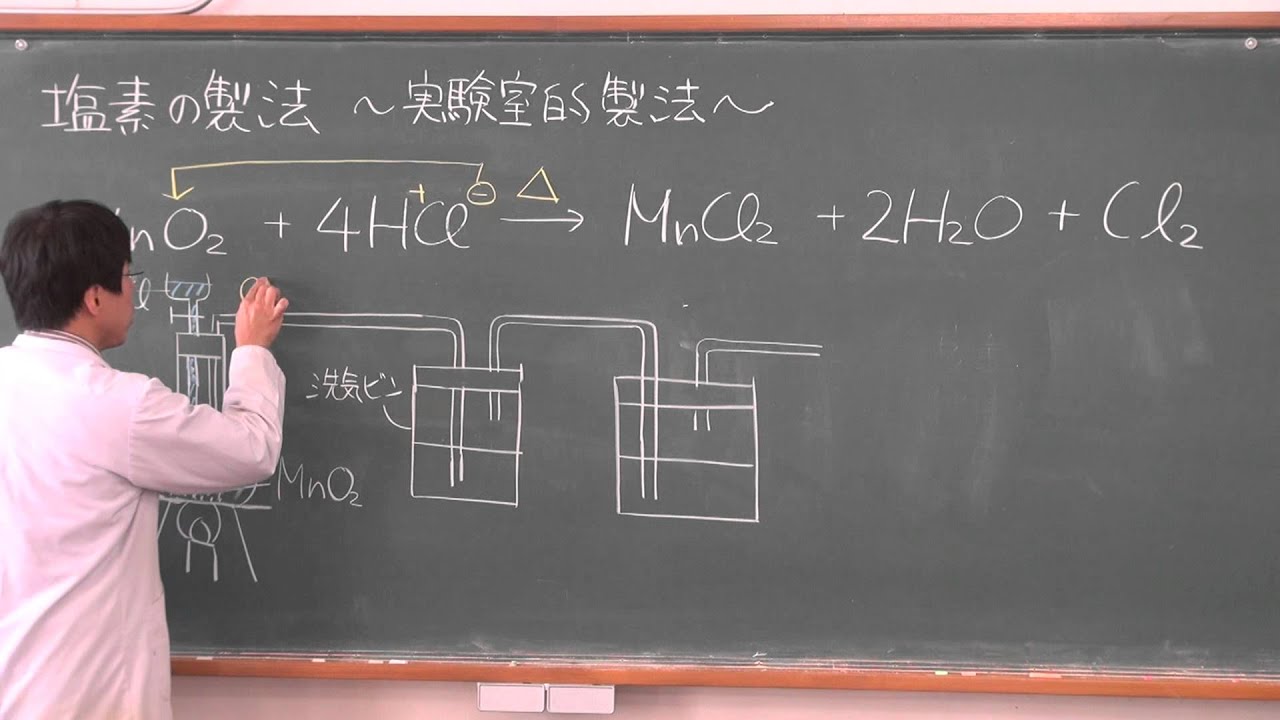 塩素の製法 ～実験室的製法～
nO₂ + 4HCl → MnCl₂ + 2H₂O + Cl₂
+ ⊖ △
l
洗気ビン
MnO₂